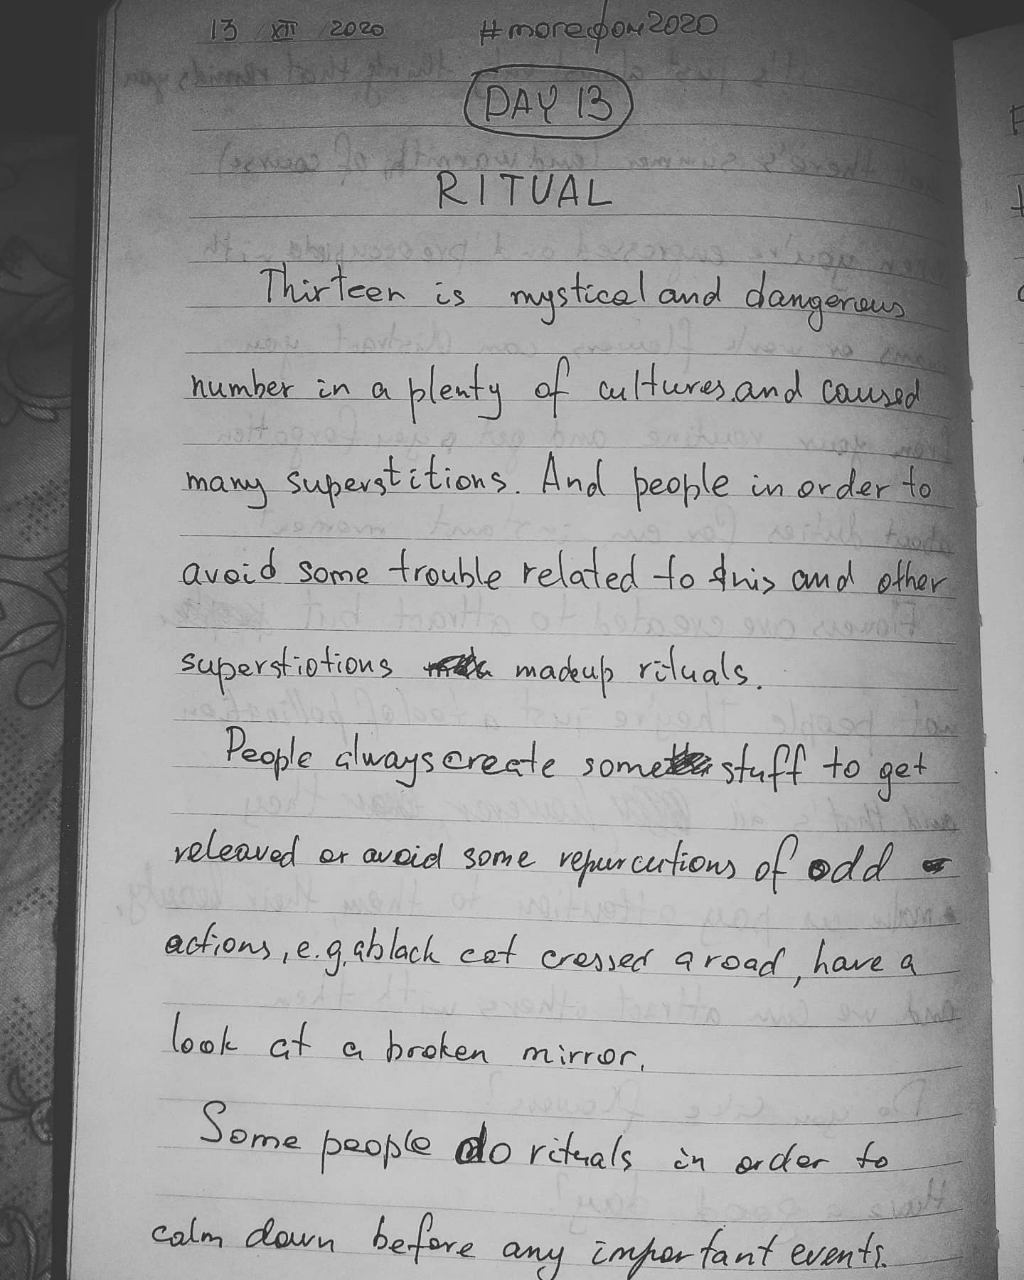 13 XII 2020 #moreфом2020
DAY 13
RITUAL
Thirteen is mystical and dangerous
number in a plenty of cultures, and caused
many superstitions. And people in order to
avoid some trouble related to this and other
superstiotions madeup rituals.
People always create some stuff to get
releaved or avoid some repurcutions of odd
actions, e.g. a black cat crossed a road, have a
look at a broken mirror.
Some people do rituals in order to
calm down before any important events.